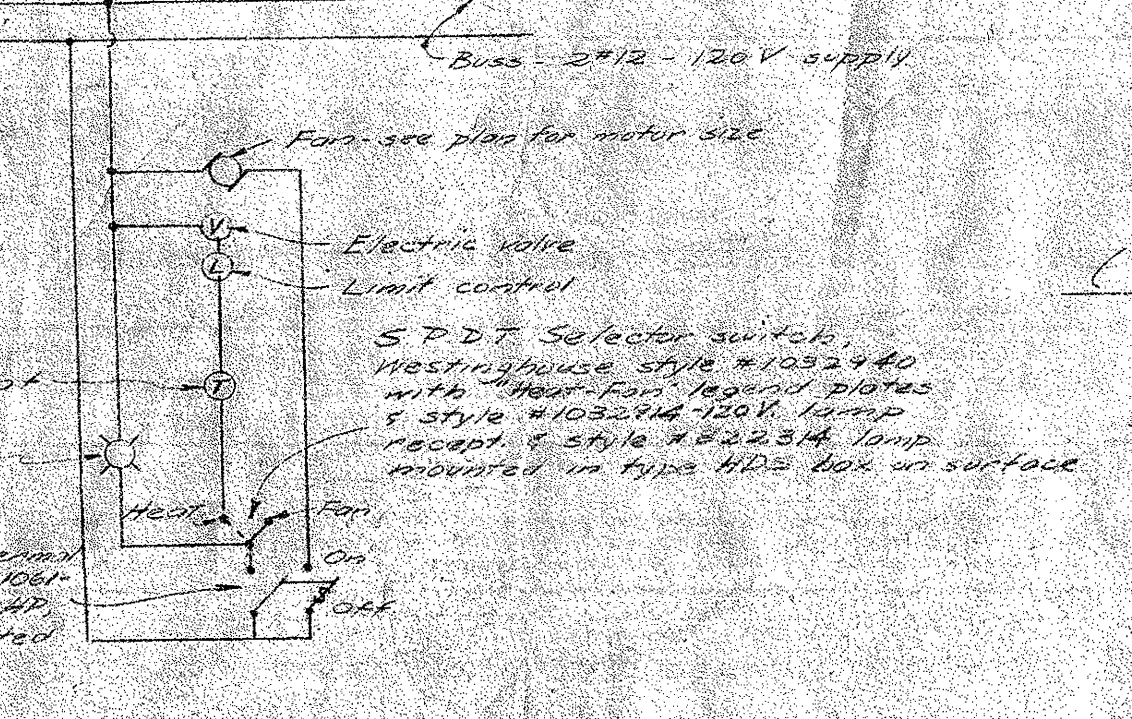 Buss - 2#12 - 120 V supply
Fan - see plan for motor size
V
Electric valve
L
Limit control
S P D T Selector switch,
Westinghouse style #1032940
with "Heat-Fan" legend plates
T
& style #1032914-120V. lamp
recept. & style #822314 lamp
mounted in type HDS box on surface
Heat
Fan
On
1061-
HP,
Off